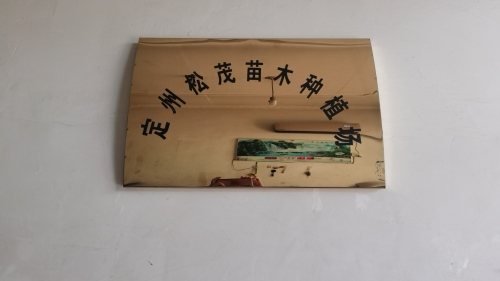 定州松茂苗木种植场